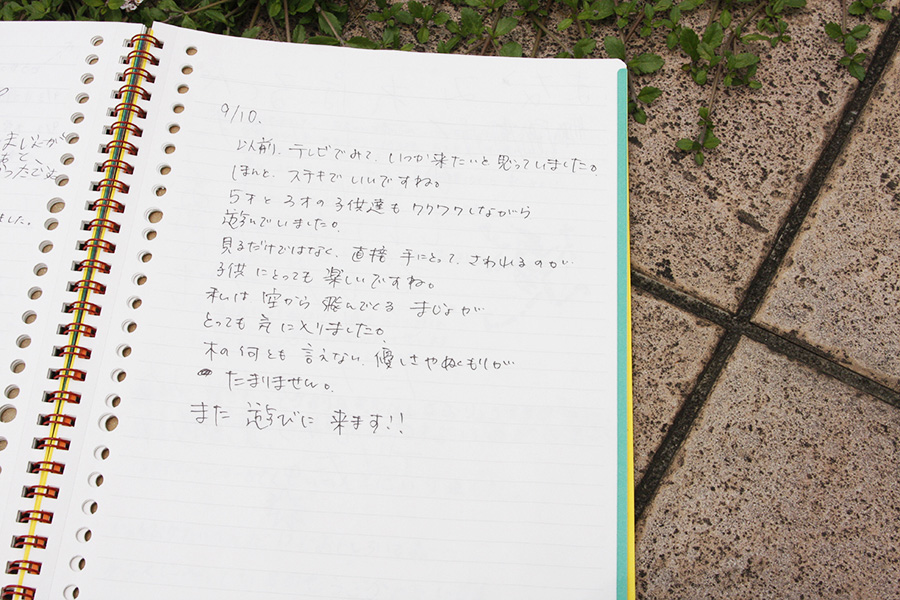 まい
が
と、
ったでむ
ました。
9/10.
以前、テレビでみて、いつか来たいと思っていました。
ほんと、ステキでいいですね。
5才と3才の子供達もワクワクしながら
遊んでいました。
見るだけではなく、直接手にとって、さわれるのが
子供にとっても楽しいですね。
私は空から飛んでくるまじょが
とっても気に入りました。
木の何とも言えない、優しさやぬくもりが
たまりません。
また遊びに来ます!!